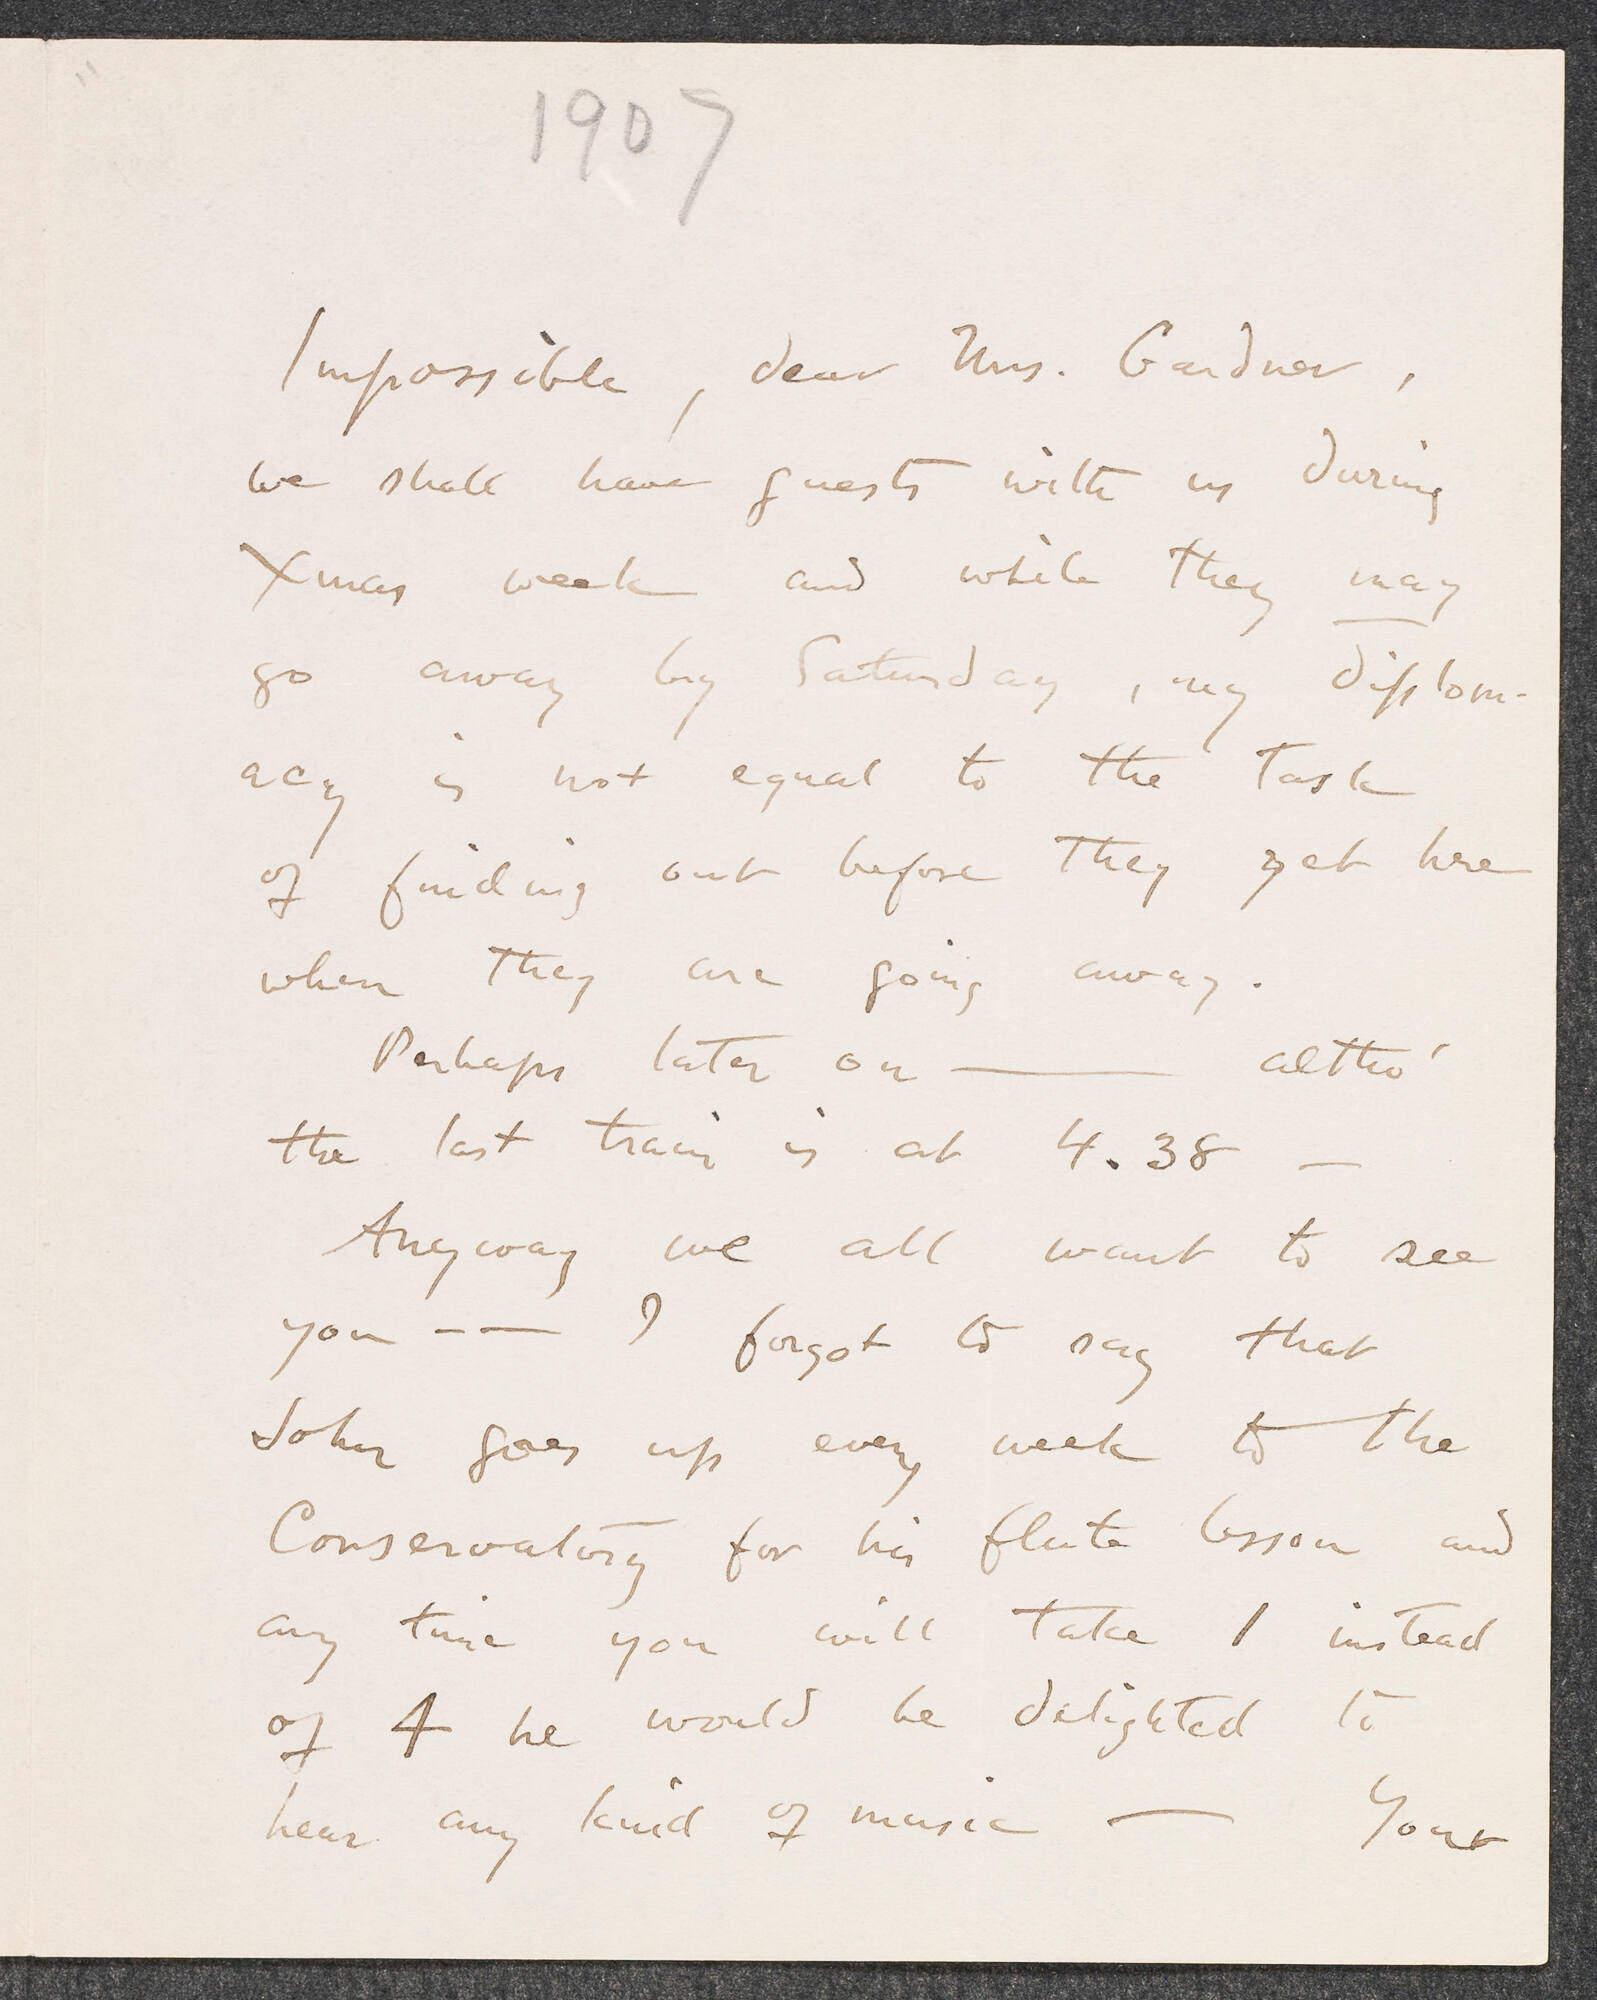 1907
Impossible, dear Mrs. Gardner,
we shall have guests with us during
Xmas week and while they may
go away by Saturday, my diplom-
acy is not equal to the task
of finding out before they get here
when they are going away.
Perhaps later on — altho'
the last train is at 4.38 —
Anyway we all want to see
you -— I forgot to say that
John goes up every week to the
Conservatory for his flute lesson and
any time you will take 1 instead
of 4 he would be delighted to
hear any kind of music — Your